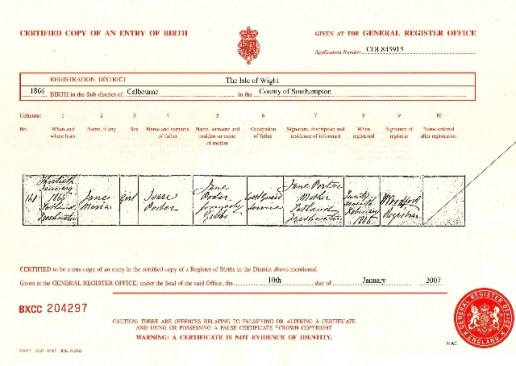 CERTIFIED COPY OF AN ENTRY OF BIRTH
GIVEN AT THE GENERAL REGISTER OFFICE
Application Number COL845915
REGISTRATION DISTRICT The Isle of Wight
1866 BIRTH in the Sub-district of Calbourne in the County of Southampton
Columns:- 1 2 3 4 5 6 7 8 9 10
No. When and where born Name, if any Sex Name and surname of father Name, surname and maiden surname of mother Occupation of father Signature, description and residence of informant When registered Signature of registrar Name entered after registration
Jane Maria
Girl
Porter
Jane Porter formerly
Coast Guard Service
Jane Porter Mother
Freshwater
February 1866
Registrar
CERTIFIED to be a true copy of an entry in the certified copy of a Register of Births in the District above mentioned.
Given at the GENERAL REGISTER OFFICE, under the Seal of the said Office, the 10th day of January 2007
BXCC 204297
CAUTION: THERE ARE OFFENCES RELATING TO FALSIFYING OR ALTERING A CERTIFICATE
AND USING OR POSSESSING A FALSE CERTIFICATE ©CROWN COPYRIGHT
WARNING: A CERTIFICATE IS NOT EVIDENCE OF IDENTITY.
GENERAL REGISTER OFFICE
ENGLAND